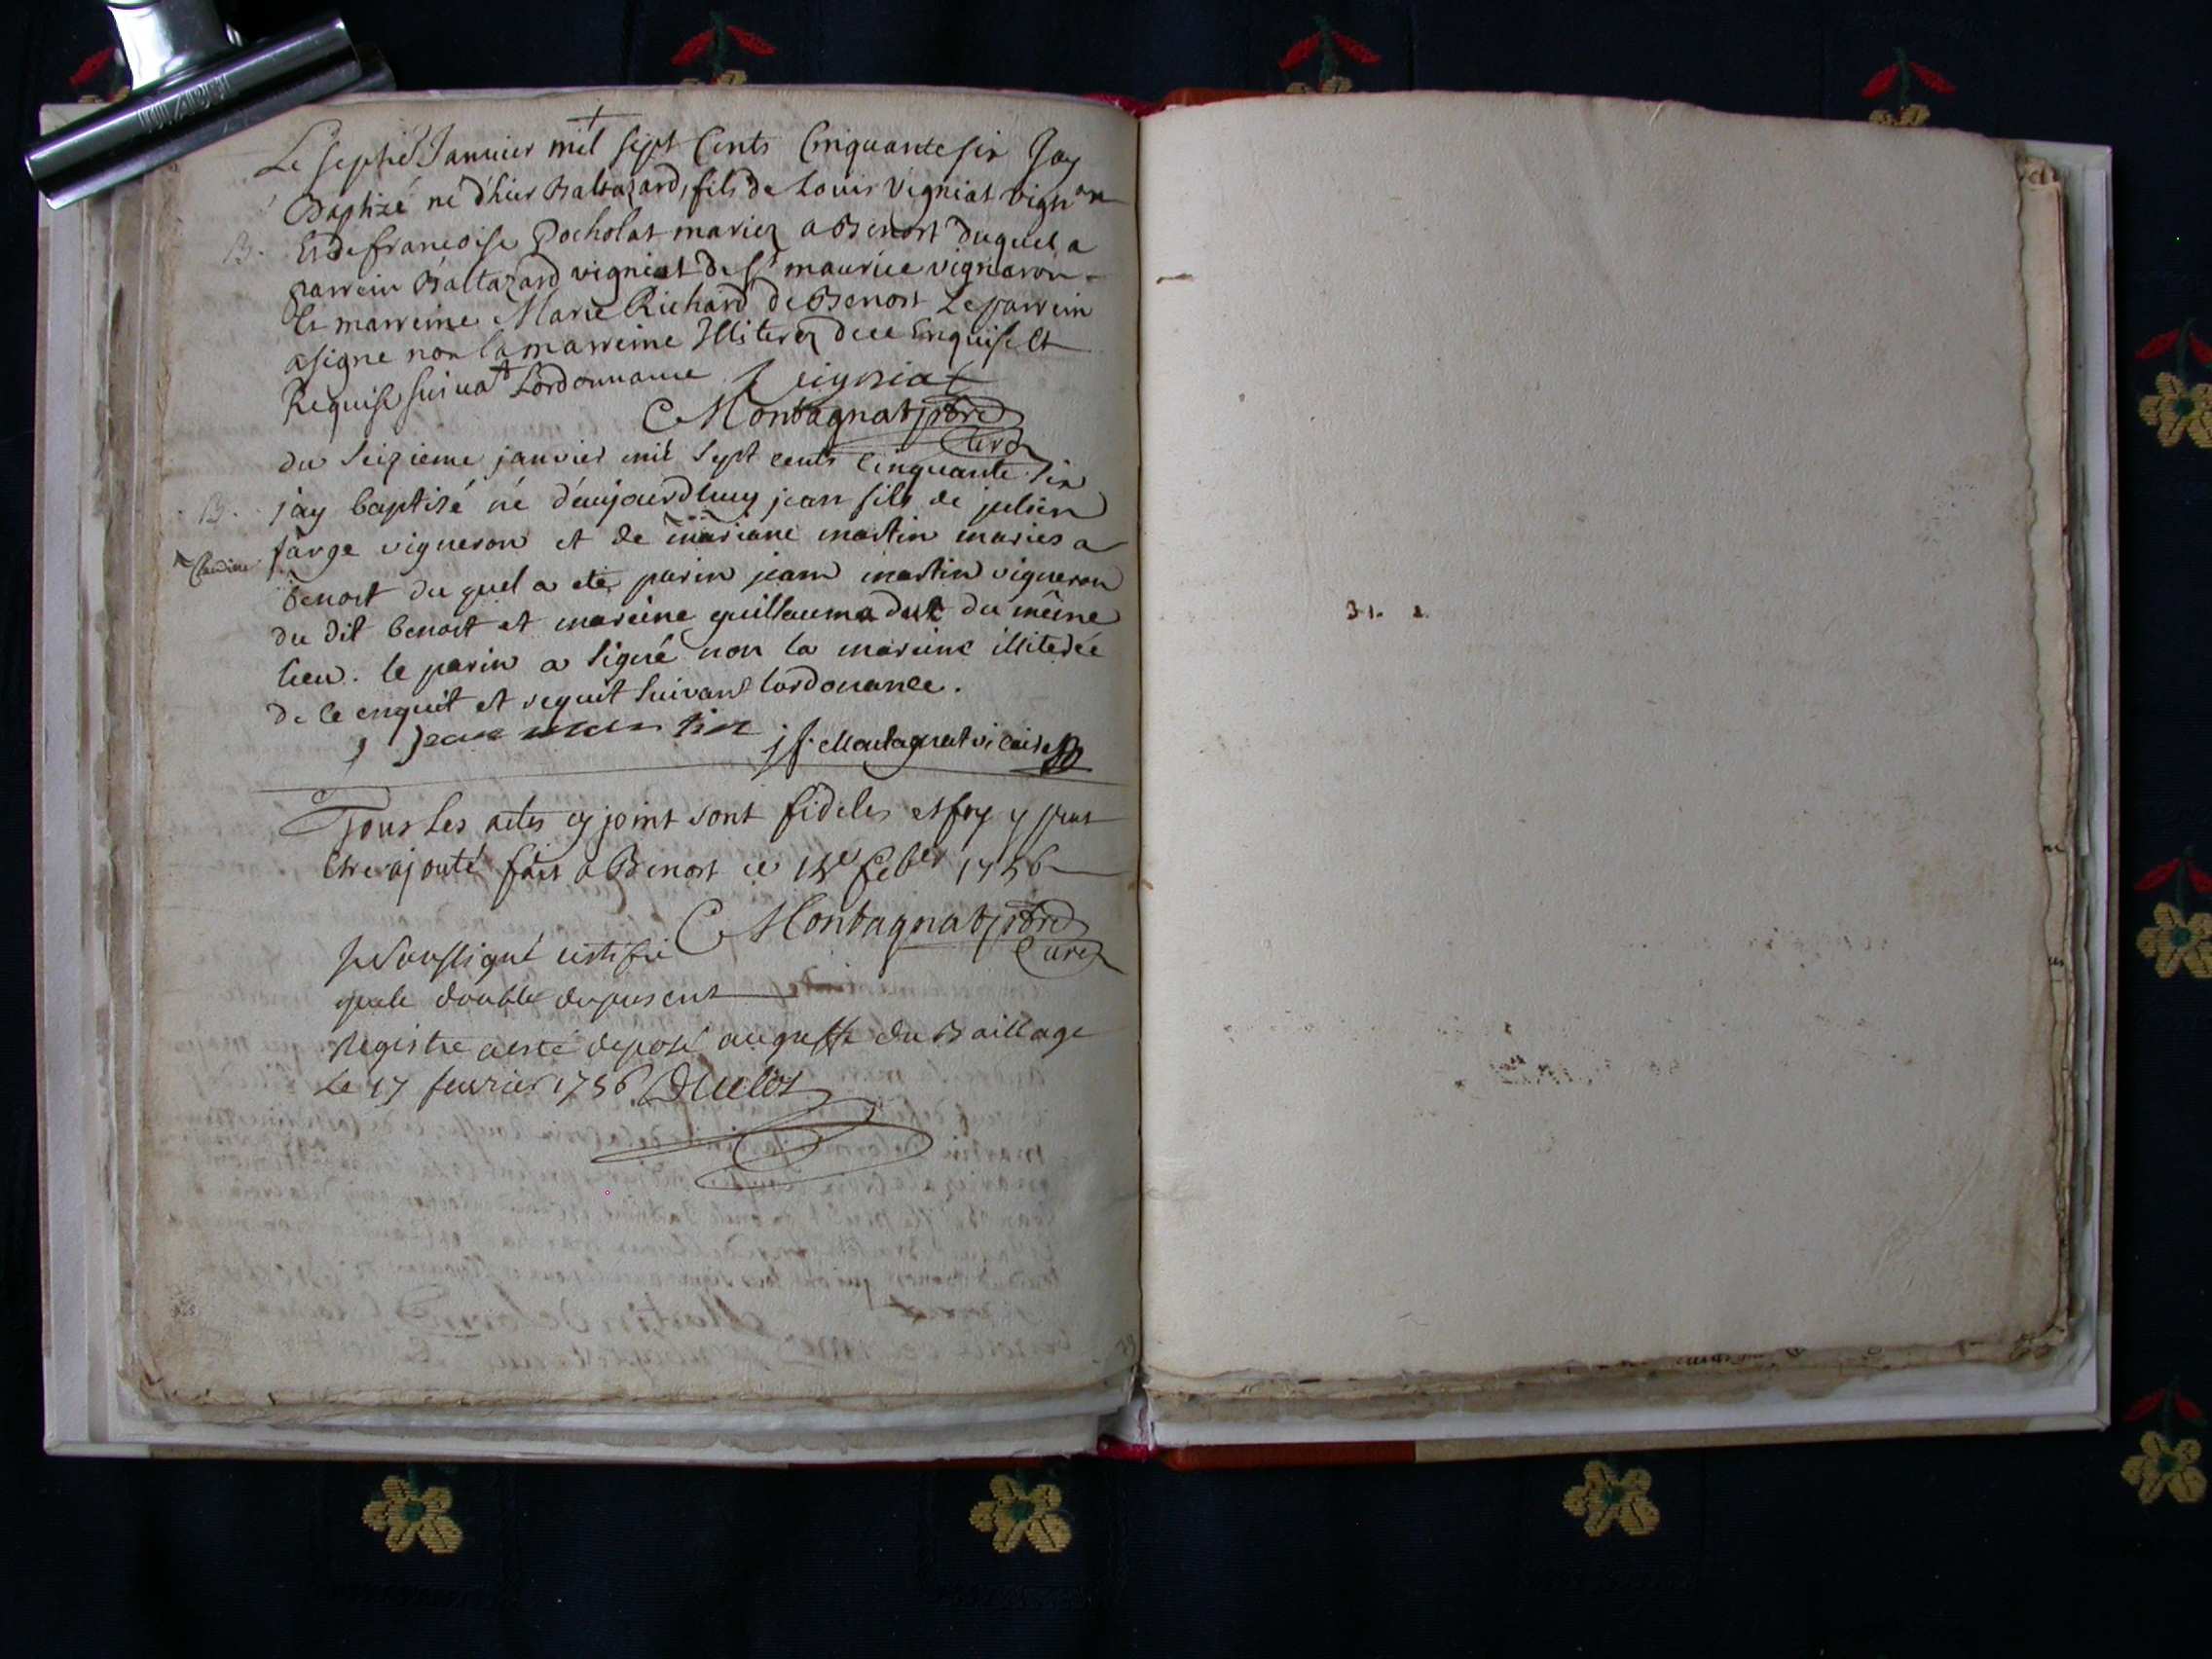 Le septie Janvier mil sept Cents Cinquante six Jay
Baptizé né d'hier Baltazard, fils de Louis Vigniat vignon
B. Et de francoise Pocholat mariez a Benost duquel a
parrein Baltazard vigniat de St maurice vigneron
Et marreine Marie Richard de Benost Le parrein
a signe non la marreine Illiterez de ce Enquise Et
Requise suivat Lordonnance Veigniat
C Montagnat ptre
Curé
du seizieme janvier mil sept cents cinquante six
B. jay baptisé né d'aujourdhuy jean fils de julien
farge vigneron et de mariane martin mariés a
Claudine
benost du quel a eté parin jean martin vigneron
du dit benost et mareine guillauma duc du même
lieu. le parin a signé non la mareine illiterée
de ce enquit et requit suivant lordonance.
Jean martin j f. Montagnat vicaire
Tous Les actes cy joint sont fideles et foy y peut
Etre ajouté fait a Benost ce 15e feber 1756
C Montagnat ptre
Curé
Je Soussigné certifie
que le double du present
Registre a esté deposé au greffe du Baillage
Le 17 fevrier 1756 Duclos
31.